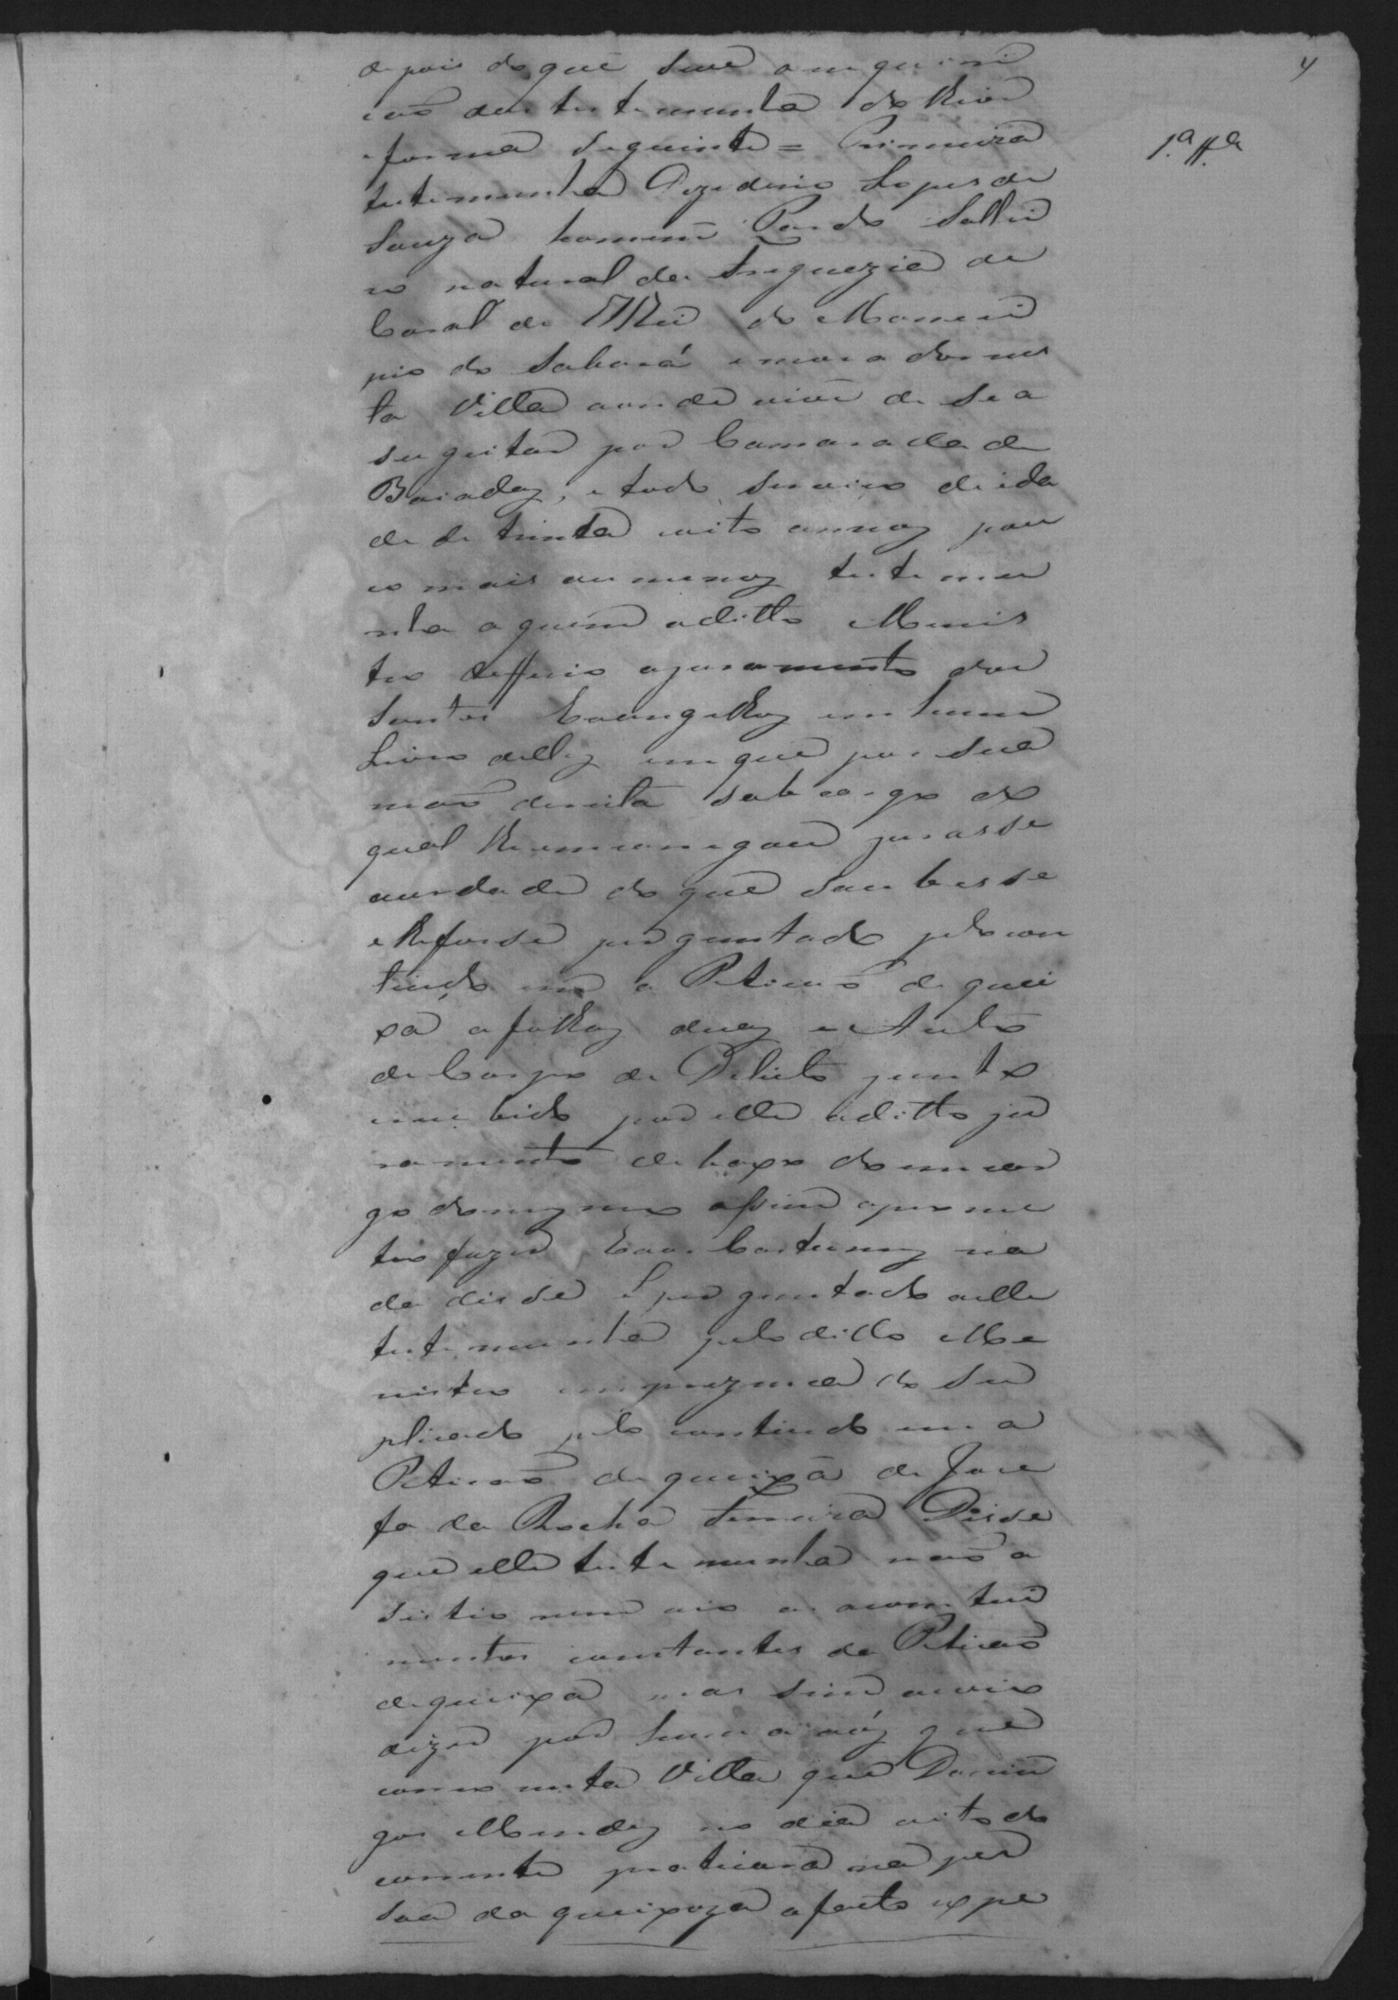 4
1.ª tt.ª
depois do que fêz a inquiri
caõ das testemunha do theor
e forma seguinte = Primeira
testemunha Lopes de
Souza homem Pardo Soltei
ro natural da Freguezia de
Curral de ElRei do Momeci
pio do Sabará e morador nes
ta Villa aonde vive de se a
sugeitar por Camarada de
Boiadaz, e todo serviço de ida
de de trinta e oito annoz pou
co mais ou menoz testemu
nha a quem o ditto Menis
tro defferio o juramento dos
Santos Evangelhoz em hum
Livro dellez em que pos sua
maõ direita sob cargo do
qual lhe emcarregou jurasse
averdade do que soubesse
e lhe fosse perguntado pelo con
tiudo em a Peticaõ de quei
xa a folhaz duaz e Auto
de Corpo de Delicto junto
recebido por elle o ditto ju
ramento debaxo do emcar
go do mezmo assim o prome
teo fazer E aos Costumez na
da disse E perguntado a elle
testemunha pelo ditto Me
nistro em prezença do Su
plicado pelo contiudo em a
Peticaõ de queixa de Joze
fa da Rocha Ferreira Disse
que elle testemunha naõ a
sistio nem vio os acometei
mentos constantes da Peticaõ
de queixa mas sim ouvio
dizer por huma vóz que
correo nesta Villa que Domin
gos Mendez no dia oito do
corrente praticara na pes
soa da queixoza o facto expe